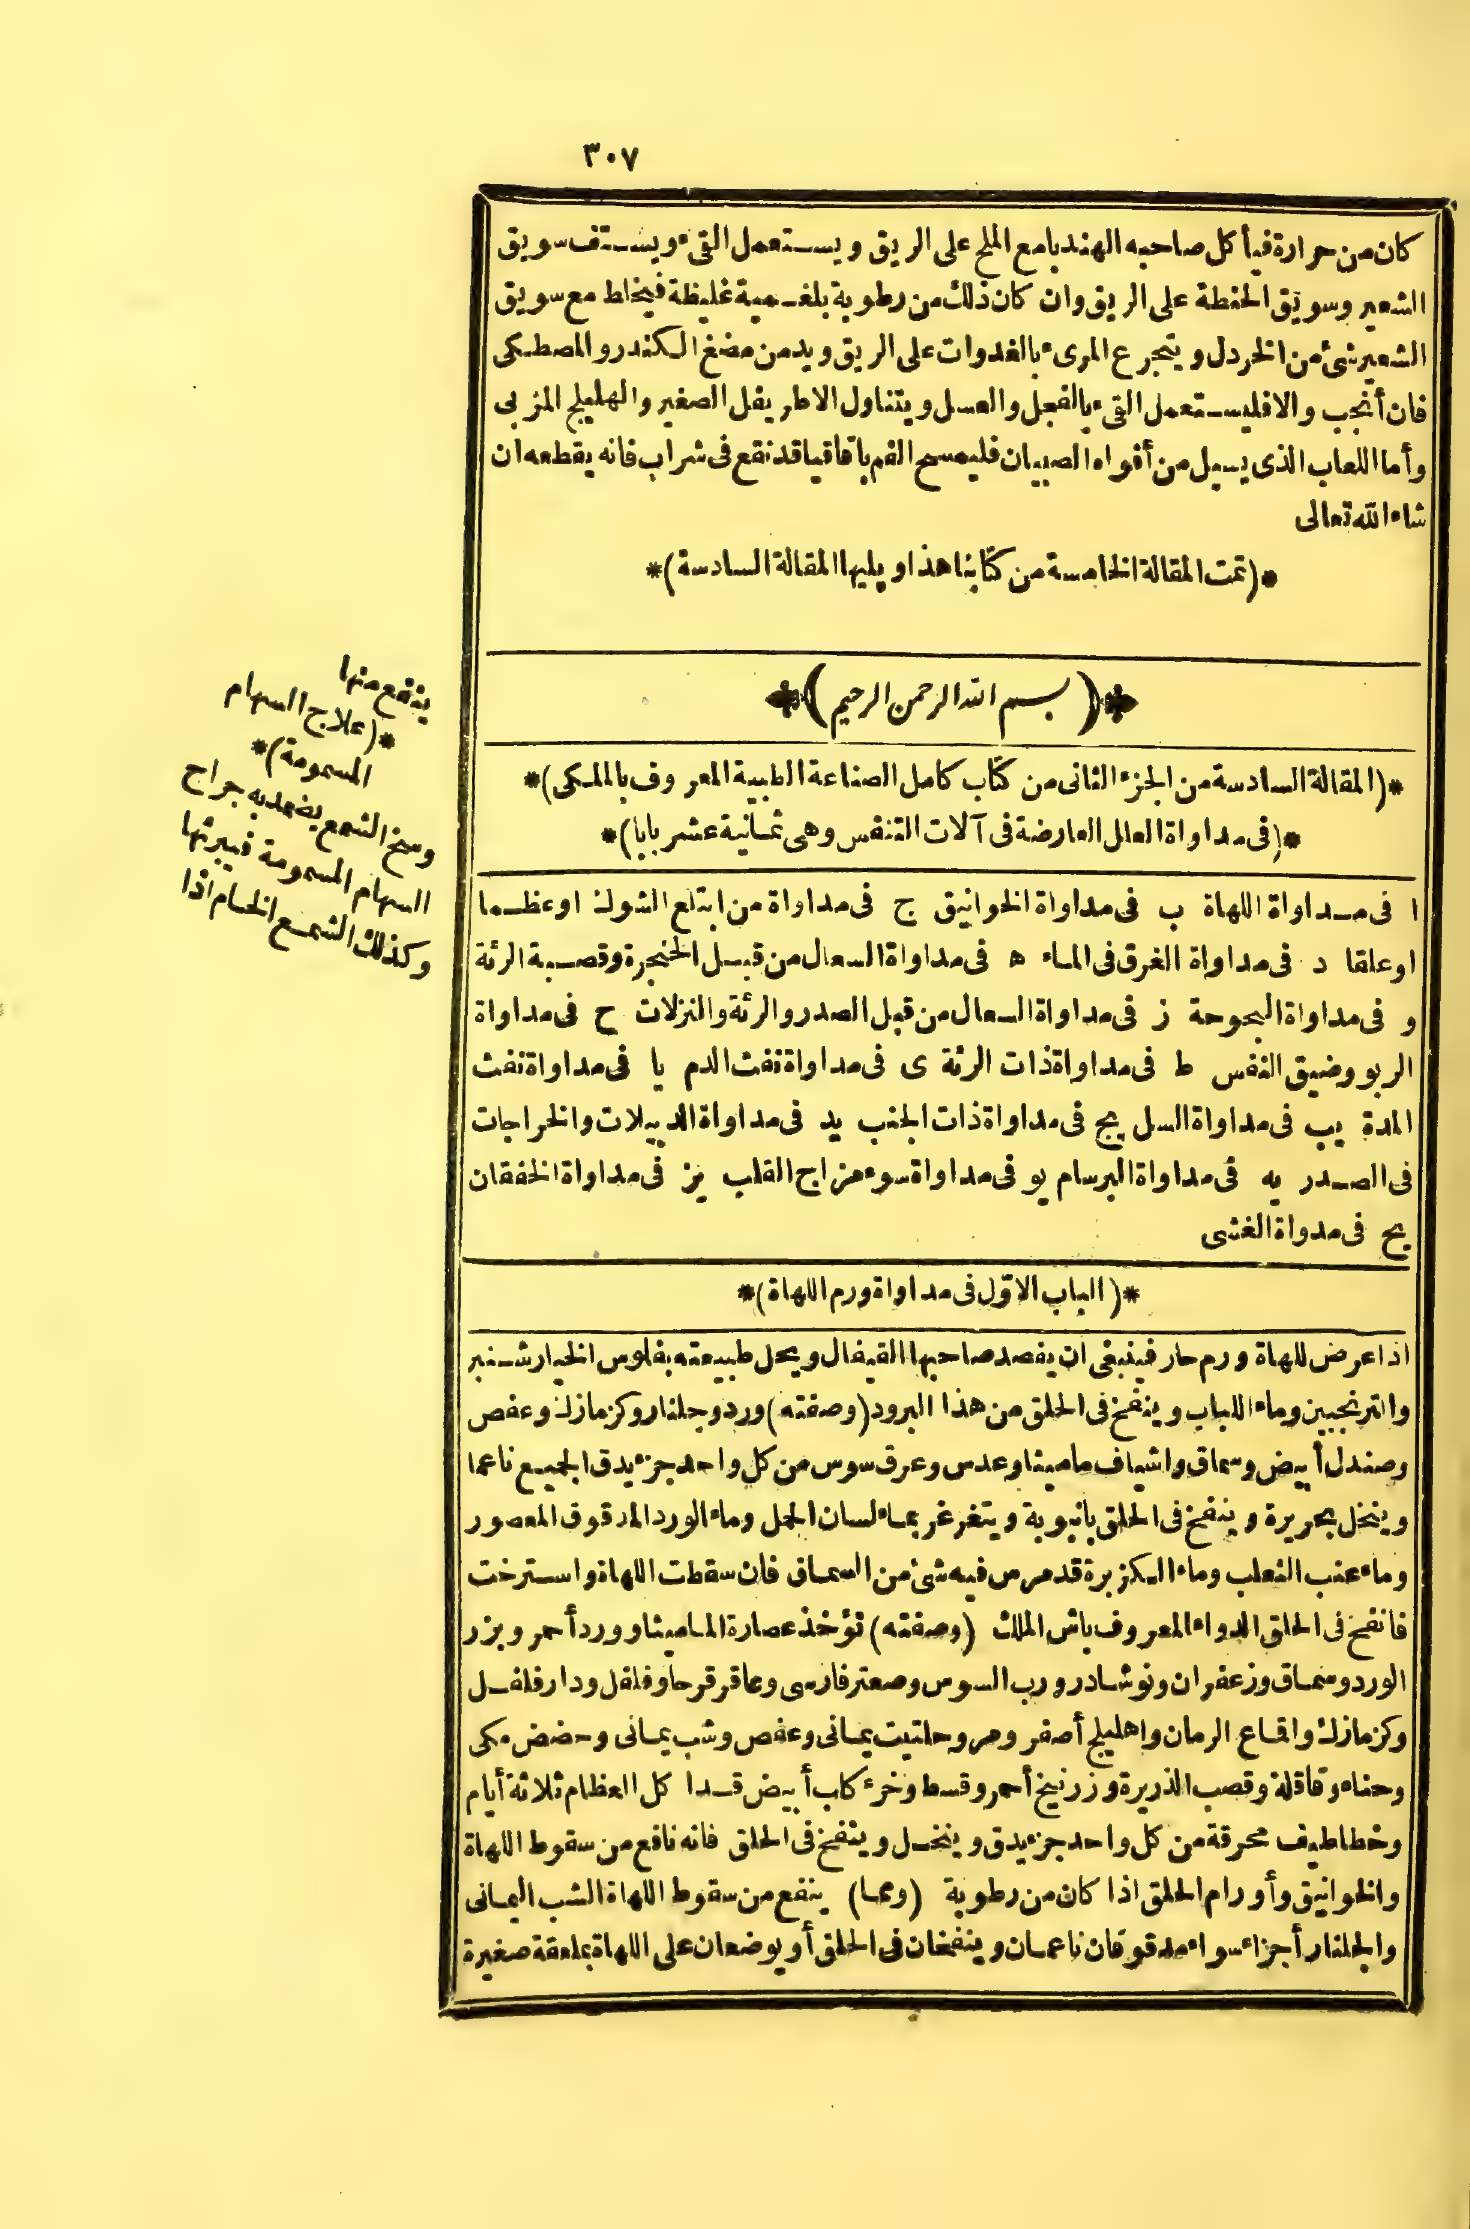 ٣٠٧
كان من حرارة فيأكل صاحبه الهندبا مع الملح على الريق ويستعمل القىء ويستف سويق
الشعير وسويق الحنطة على الريق وان كان ذلك من رطوبة بلغمية غليظة فيخلط مع سويق
الشعير شئ من الخردل ويتجرع المرىء بالغدوات على الريق ويدمن مضغ الكندر والمصطكى
فان أنجب والا فليستعمل القىء بالفجل والعسل ويتناول الاطريفل الصغير والهليلج المربى
وأما اللعاب الذى يسيل من أفواه الصبيان فليمسح الفم باقاقيا قد نقع فى شراب فانه يقطعه ان
شاء الله تعالى
*(تمت المقالة الخامسة من كتابنا هذا ويليها المقالة السادسة)*
(بسم الله الرحمن الرحيم)
*(المقالة السادسة من الجزء الثانى من كتاب كامل الصناعة الطبية المعروف بالملكى)*
*(فى مداواة العلل العارضة فى آلات التنفس وهى ثمانية عشر بابا)*
ا فى مداواة اللهاة ب فى مداواة الخوانيق ج فى مداواة من ابتلع الشوك او عظما
او علقا د فى مداواة الغرق فى الماء ه فى مداواة السعال من قبل الحنجرة وقصبة الرئة
و فى مداواة البحوحة ز فى مداواة السعال من قبل الصدر والرئة والنزلات ح فى مداواة
الربو وضيق النفس ط فى مداواة ذات الرئة ى فى مداواة نفث الدم يا فى مداواة نفث
المدة يب فى مداواة السل يج فى مداواة ذات الجنب يد فى مداواة الدبيلات والخراجات
فى الصدر يه فى مداواة البرسام يو فى مداواة سوء مزاج القلب يز فى مداواة الخفقان
يح فى مدواة الغشى
*(الباب الاول فى مداواة ورم اللهاة)*
اذا عرض للهاة ورم حار فينبغى ان يفصد صاحبها القيفال ويحل طبيعته بفلوس الخيارشنبر
والترنجبين وماء اللباب وينفخ فى الحلق من هذا البرود (وصفته) ورد وجلنار وكزمازك وعفص
وصندل أبيض وسماق واشياف ماميثا وعدس وعرق سوس من كل واحد جزء يدق الجميع ناعما
وينخل بحريرة وينفخ فى الحلق بانبوبة ويتغرغر بماء لسان الحمل وماء الورد المدقوق المعصور
وماء عنب الثعلب وماء الكزبرة قد مرس فيه شئ من السماق فان سقطت اللهاة واسترخت
فانفخ فى الحلق الدواء المعروف باش الملك (وصفته) تؤخذ عصارة الماميثا وورد أحمر وبزر
الورد وسماق وزعفران ونوشادر ورب السوس وصعتر فارسى وعاقرقرحا وفلفل ودارفلفل
وكزمازك واقماع الرمان واهليلج أصفر ومر وحلتيت يمانى وعفص وشب يمانى وحضض مكى
وحناء وقاقلة وقصب الذريرة وزرنيخ أحمر وقسط وخرء كلب أبيض قد اكل العظام ثلاثة أيام
وخطاطيف محرقة من كل واحد جزء يدق وينخل وينفخ فى الحلق فانه نافع من سقوط اللهاة
والخوانيق وأورام الحلق اذا كان من رطوبة (ومما) ينفع من سقوط اللهاة الشب اليمانى
والجلنار أجزاء سواء مدقوقان ناعمان وينفخان فى الحلق أو يوضعان على اللهاة بملعقة صغيرة
ينتفع منها
*(علاج السهام
المسمومة)*
وسخ الشمع يضمد به جراح
السهام المسمومة فيبرئها
وكذلك الشمع الخام اذا